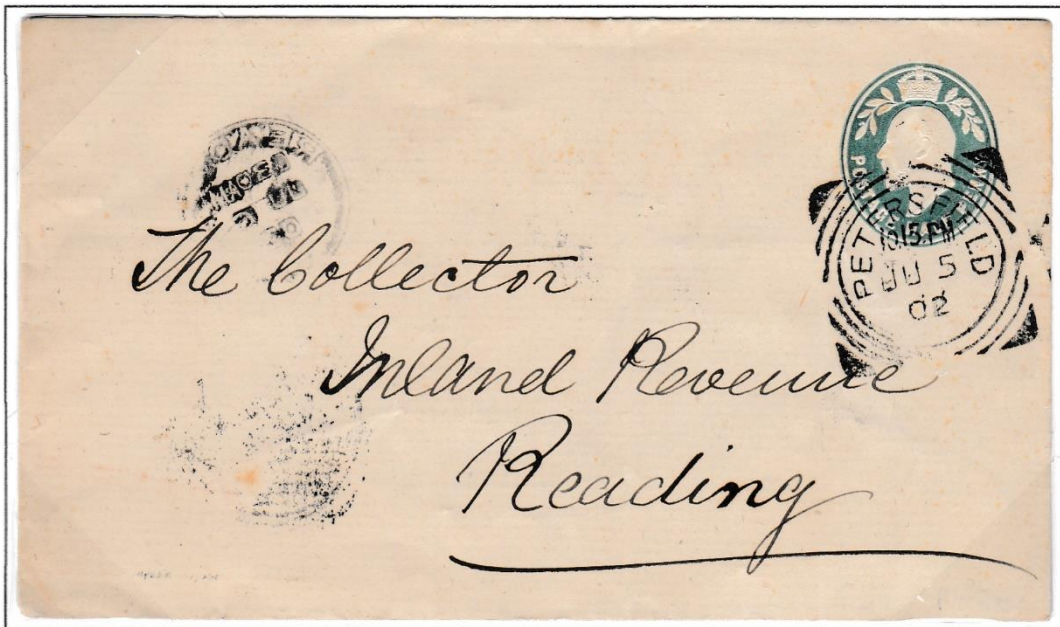 POSTAGE
PETERSFIELD
10.15.PM
JU 5
02
The Collector
Inland Revenue
Reading